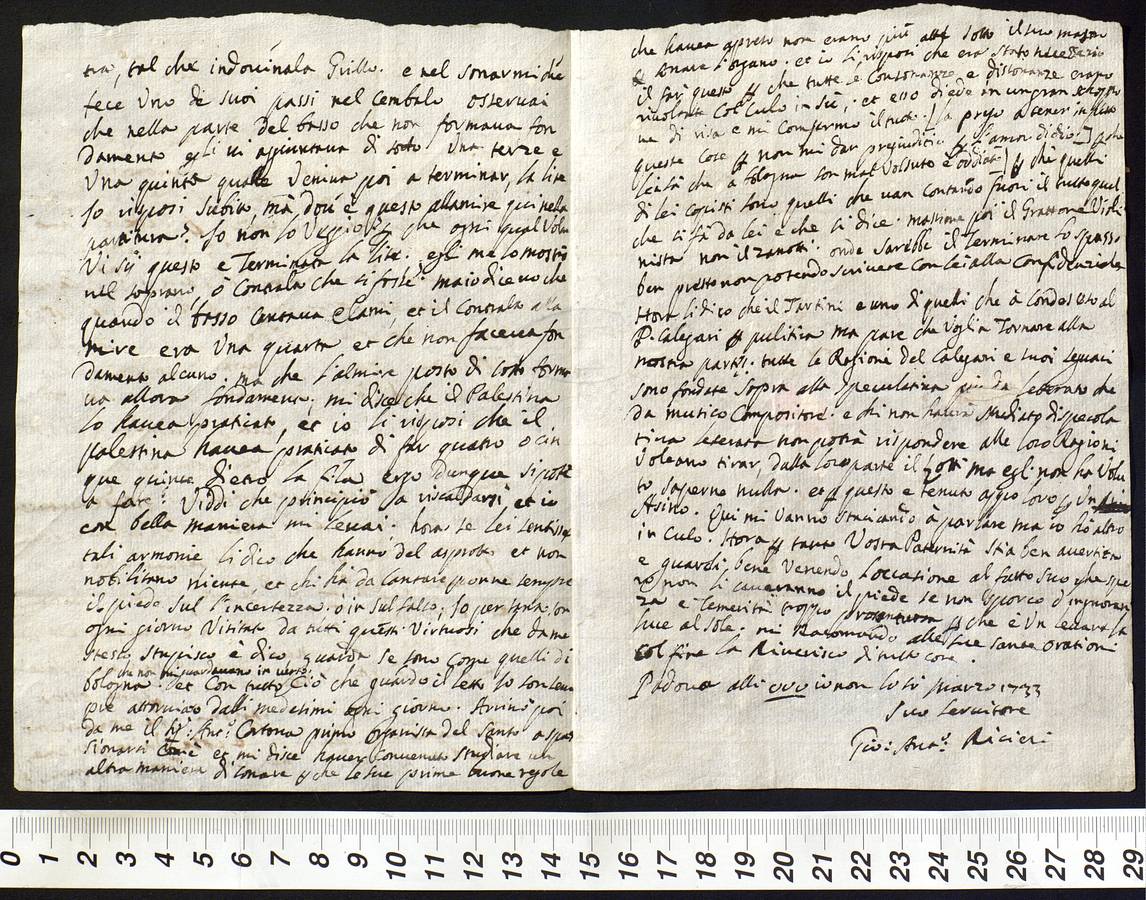 tra, tal che indovinala Grillo. e nel sonarmi che
fece Uno de suoi passi nel Cembalo osservai
che nella parte del basso che non formava fon
damento gli vi aggiuntava di sotto Una terza e
Una quinta quale Veniva poi a terminar, la lite
Io risposi Subito, mà dov'è questo allamire qui nella
partitura? Io non lo Veggio che ogni qual Volta
Vi sij questo e Terminata la lite. egli me lo mostrò
nel soprano ò Contralto che si fosse. ma io dicevo che
quando il basso Cantava Elami, et il Contralto alla
mire era Una quarta et che non faceva fon
damento alcuno. ma che l'almire posto di sotto forma
va allora fondamento; mi disce che il Palestina
lo havea praticato, et io li risposi che il
palestina havea praticato di far quatro o cin
que quinte dietro la fila ergo Dunque si pote
a far? Viddi che principiò a riscaldarsi et io
con bella maniera mi levai. hora se lei sentisse
tali armonie li dico che hanno del aspro et non
nobilitano niente, et chi hà da Cantare porrne sempre
il piede sul l'incertezza. ò in sul falso; Io per tanto son
ogni giorno Visitato da tutti questi Virtuosi che da me
stesso Stupisco è dico guarda se sono Coppe quelli di
che non mi guardavano in verso
bologna. et Con tutto Ciò che quando il letto Io son sem
pre attorniato dalli medesimi ogni giorno. Arrivò poi
da me il Sig: Ant: Cortona primo organista del Santo a
sionarsi et mi disce haver Convenuto Studiare un
altra maniera di sonare che le sue prime buone regole
che havea apreso non erano più sotto il suo mastro
à sonare l'organo. et io li risposi che era stato necessario
il far questo che tutte le Consonanze e dissonanze erano
rivoltate Col Culo in sù; et esso diede in un gran schioppo
ne di risa e mi Confermo il tutto. [la prego a tener in se
queste Cose non mi dar prejudicio l'amor di dio]
già che à bologna son mal Voluto e odiato che quelli
di lei Copisti sono quelli che van Contando fuori il tutto quel
che si fà da lei è che si dice. massime poi il Grattone Violi
nista non il zanotti. onde sarebbe il terminare lo spasso
ben presto non potendo scrivere con lei alla Confidenziale
Hora li dico che il Tartini e uno di quelli che à Condesceso al
P. Calegari pulitica ma pare che Voglia Tornare alla
nostra parte. tutte le Ragione del Calegari e suoi seguaci
sono fondate sopra alla Speculativa più da leterato che
da musico Compositore. e chi non haverà Studiato di specola
tiva leterata non potrà rispondere alle loro Ragioni
Voleano tirar dalla loro parte il Zotti ma egli non ha Volu
to saperne nulla. et questo e tenuto appo loro Un
Asino. Qui mi Vanno Staciando à parlare ma io hò altro
in Culo. Hora tanto Vostra Paternità Stia ben avertita
e guardi bene Venendo l'occasione al fatto suo che spe
ro non li caveranno il piede se non Sporco d'ignoran
za e Temerità troppo prosontuosa che è Un levare la
luce al Sole. mi Racomando alle sue Sante orationi
Col fine la Riverisco di tutto core.
Padova alli io non lo so Marzo 1733
Suo Servitore
Gio: Ant: Ricieri
0 1 2 3 4 5 6 7 8 9 10 11 12 13 14 15 16 17 18 19 20 21 22 23 24 25 26 27 28 29